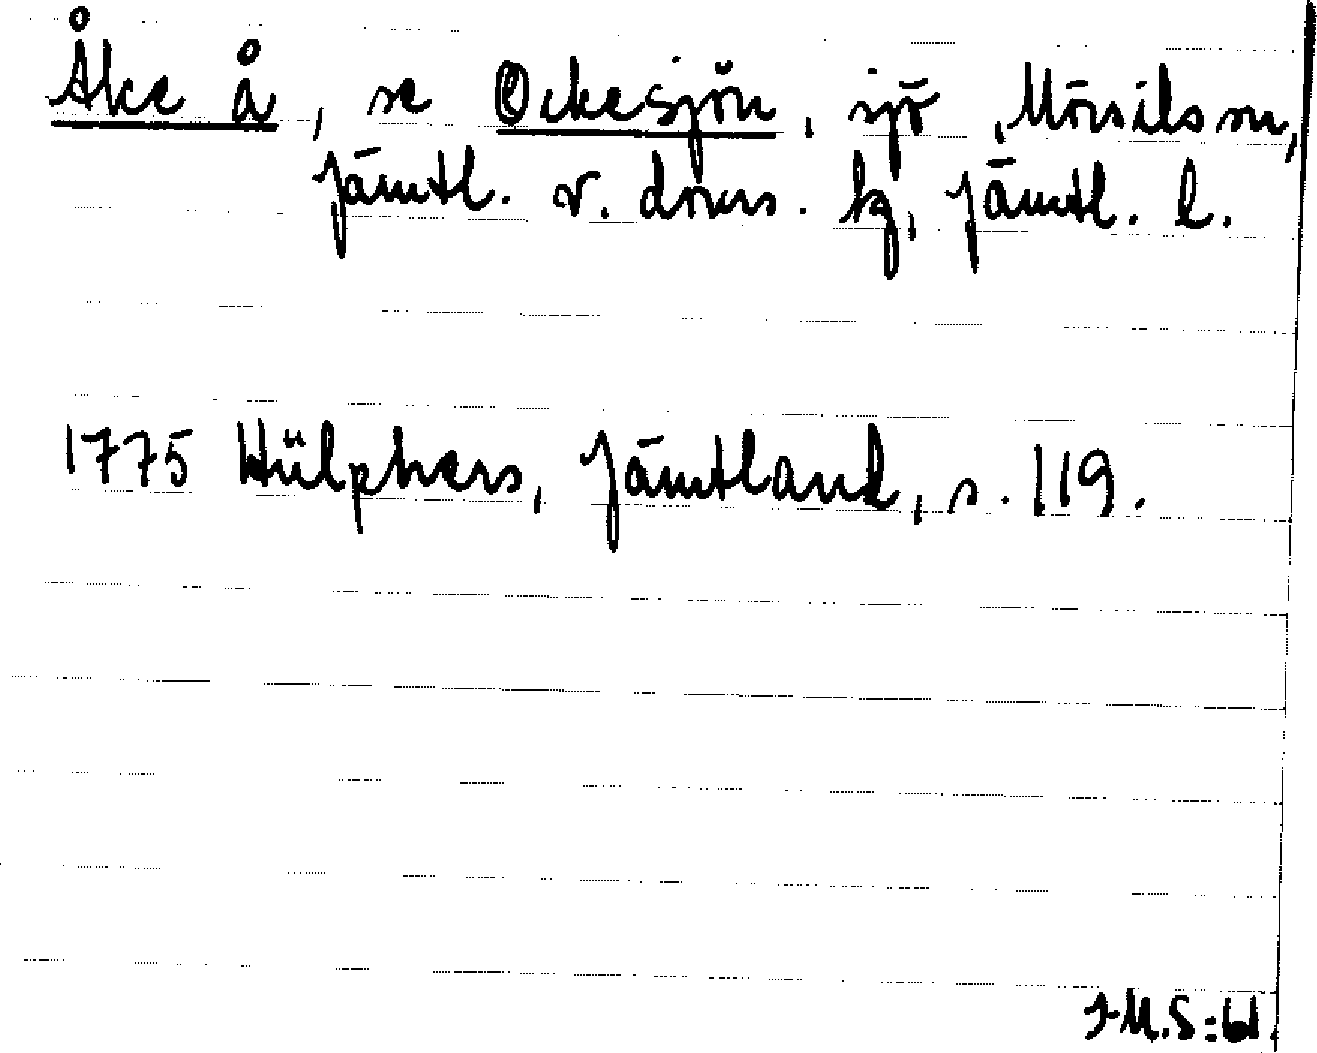 Åke å, se Ockesjön, sjö, Mörsils sn,
Jämtl. v. doms. tg, Jämtl. l.
1775 Hülphers, Jämtland, s. 119.
J.M.S:61.